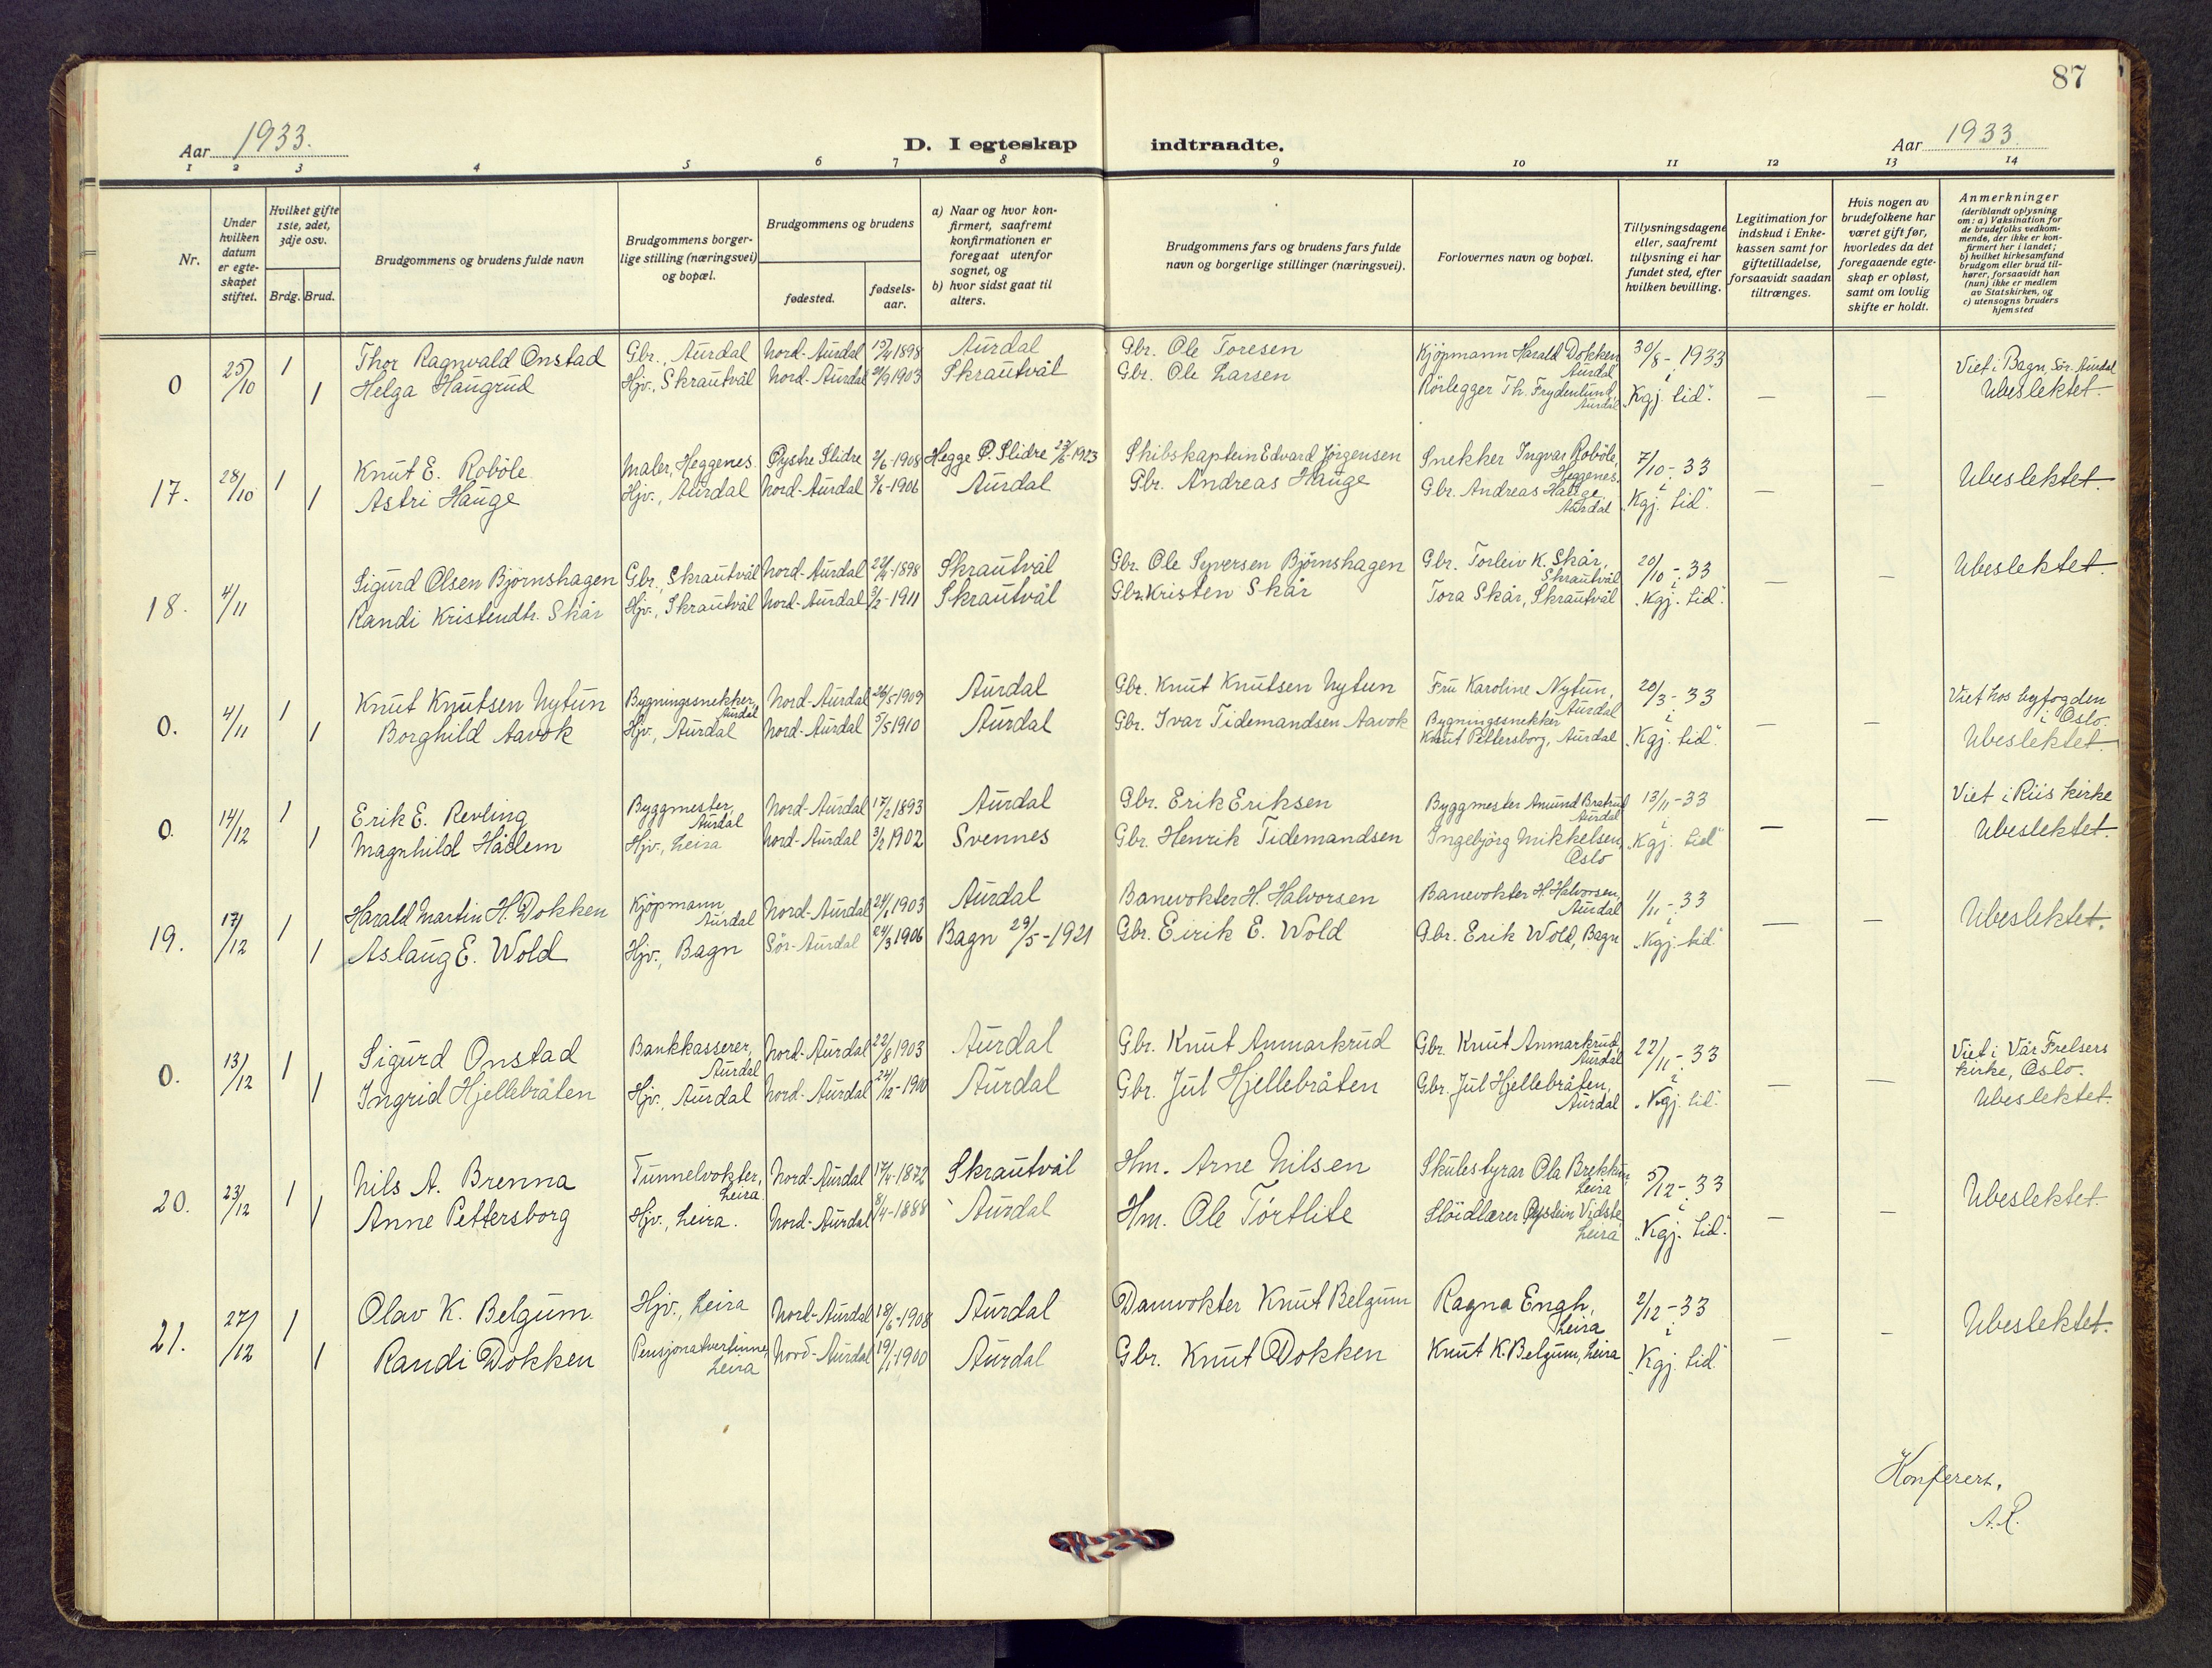 87
Aar 1933.
D. I egteskap indtraadte.
Aar 1933.
1 2 3 4 5 6 7 8 9 10 11 12 13 14
Nr.
Under hvilken datum er egteskapet stiftet.
Hvilket gifte 1ste, 2det, 3dje osv.
Brdg. Brud.
Brudgommens og brudens fulde navn
Brudgommens borgerlige stilling (næringsvei) og bopæl.
Brudgommens og brudens
fødested.
fødselsaar.
a) Naar og hvor konfirmert, saafremt konfirmationen er foregaat utenfor sognet, og
b) hvor sidst gaat til alters.
Brudgommens fars og brudens fars fulde navn og borgerlige stillinger (næringsvei).
Forlovernes navn og bopæl.
Tillysningsdagene eller, saafremt tillysning ei har fundet sted, efter hvilken bevilling.
Legitimation for indskud i Enkekassen samt for giftetilladelse, forsaavidt saadan tiltrænges.
Hvis nogen av brudefolkene har været gift før, hvorledes da det foregaaende egteskap er opløst, samt om lovlig skifte er holdt.
Anmerkninger
(deriblandt oplysning om: a) Vaksination for de brudefolks vedkommende, der ikke er konfirmert her i landet; b) hvilket kirkesamfund brudgom eller brud tilhører, forsaavidt han (hun) ikke er medlem av Statskirken, og c) utensogns bruders hjemsted
0 25/10 1 Thor Ragnvald Onstad Gbr., Aurdal Nord-Aurdal 1898 Aurdal Gbr. Ole Toresen Kjøpmann Harald Dokken Aurdal 30/8-1933 Viet i Bagn, Sør-Aurdal
1 Helga Haugrud Hjv., Skrautvål Nord-Aurdal 1903 Skrautvål Gbr. Ole Larsen Rörlegger Th. Frydenlund, Aurdal i "Kgj. tid". — — Ubeslektet.
17. 28/10 1 Knut E. Roböle Maler, Heggenes Øystre Slidre 2/6-1908 Hegge Ø. Slidre 1923 Skibskaptein Edvard Jørgensen Snekker Ingvar Roböle, Heggenes. 7/10-33 Ubeslektet.
1 Astri Hauge Hjv., Aurdal Nord-Aurdal 3/6-1906 Aurdal Gbr. Andreas Hauge Gbr. Andreas Hauge, Aurdal i "Kgj. tid". — —
18. 4/11 Sigurd Olsen Björnshagen Gbr., Skrautvål Nord-Aurdal 1898 Skrautvål Gbr. Ole Syversen Björnshagen Gbr. Torleiv K. Skår, Skrautvål 20/10-33 Ubeslektet.
Randi Kristendtr. Skår Hjv., Skrautvål Nord-Aurdal 1911 Skrautvål Gbr. Kristen Skår Tora Skår, Skrautvål i "Kgj. tid". — —
0. 4/11 1 Knut Knutsen Nytun Bygningssnekker, Aurdal Nord-Aurdal 26/5 1909 Aurdal Gbr. Knut Knutsen Nytun Fru Karoline Nytun, Aurdal 20/3-33 Viet hos byfogden i Oslo.
1 Borghild Aavok Hjv., Aurdal Nord-Aurdal 1910 Aurdal Gbr. Ivar Tidemandsen Aavok Bygningssnekker Knut Pettersborg, Aurdal i "Kgj. tid". — — Ubeslektet.
0. 14/12 1 Erik E. Revling Byggmester, Aurdal Nord-Aurdal 17/2 1893 Aurdal Gbr. Erik Eriksen Byggmester Amund Bratrud Aurdal 13/11-33 Viet i Riis kirke
1 Magnhild Hådem Hjv., Leira Nord-Aurdal 3/2 1902 Svennes Gbr. Henrik Tidemandsen Ingebjörg Mikkelsen, Oslo i "Kgj. tid" — — Ubeslektet.
19. 17/12 1 Harald Martin H. Dokken Kjöpmann Aurdal Nord-Aurdal 1903 Aurdal Banevokter H. Halvorsen Banevokter H. Halvorsen, Aurdal 1/11-33 Ubeslektet.
1 Aslaug E. Wold Hjv., Bagn Sör-Aurdal 24/3 1906 Bagn 29/5-1921 Gbr. Eirik E. Wold Gbr. Erik Wold, Bagn i "Kgj. tid" — —
0. 13/12 1 Sigurd Onstad Bankkasserer, Aurdal Nord-Aurdal 22/8 1903 Aurdal Gbr. Knut Anmarkrud Gbr. Knut Anmarkrud, Aurdal 22/11-33 Viet i Vår Frelsers kirke, Oslo.
1 Ingrid Hjellebråten Hjv., Aurdal Nord-Aurdal 24/12-1910 Aurdal Gbr. Jul Hjellebråten Gbr. Jul Hjellebråten, Aurdal i "Kgj. tid". — — Ubeslektet.
20. 23/12 1 Nils A. Brenna Tunnelvokter, Leira. Nord-Aurdal 17/4-1872 Skrautvål Hm. Arne Nilsen Skulestyrar Ola Brekken, Leira 5/12-33 Ubeslektet.
1 Anne Pettersborg Hjv., Leira. Nord-Aurdal 8/4-1888 Aurdal Hm. Ole Törtlite Slöidlærer Øystein Vidste Leira i "Kgj. tid". — —
21. 27/12 1 Olav K. Belgum Hjv., Leira Nord-Aurdal 18/6-1908 Aurdal Damvokter Knut Belgum Ragna Engh, Leira 2/12-33 Ubeslektet.
1 Randi Dokken Pensjonatvertinne, Leira Nord-Aurdal 19/1 1900 Aurdal Gbr. Knut Dokken Knut K. Belgum, Leira i "Kgj. tid" — —
Konferert.
A.R.